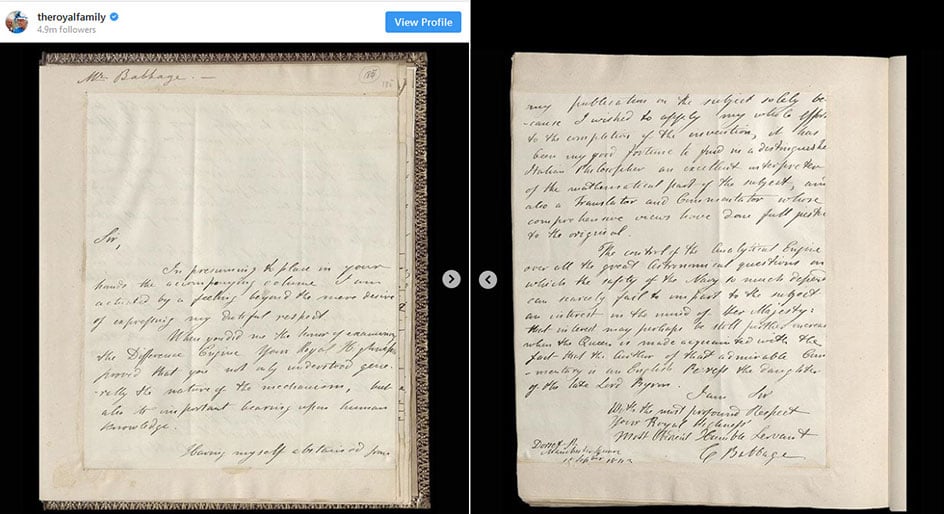 theroyalfamily
4.9m followers
View Profile
Mr. Babbage. —
186
Sir,
In presuming to place in your
hands the accompanying volume I am
actuated by a feeling beyond the mere desire
of expressing my dutiful respect.
When you did me the honor of examining
the Difference Engine Your Royal Highness
proved that you not only understood gene-
-rally the nature of the mechanism, but
also its important bearing upon human
knowledge.
Having myself abstained from
any publication on the subject solely be-
-cause I wished to apply my whole efforts
to the completion of the invention, it has
been my good fortune to find in a distinguished
Italian Philosopher an excellent interpreter
of the mathematical part of the subject, and
also a Translator and Commentator whose
comprehensive views have done full justice
to the original.
The control of the Analytical Engine
over all the great Astronomical questions on
which the safety of the Navy so much depends
can scarcely fail to impart to the subject
an interest in the mind of Her Majesty:
that interest may perhaps be still further increased
when the Queen is made acquainted with the
fact that the Author of that admirable Com-
-mentary is an English Peeress the daughter
of the late Lord Byron.
I am Sir
With the most profound Respect
Your Royal Highness'
Most Obedient Humble Servant
C Babbage
Dorset St
Manchester Square
Sept 1843